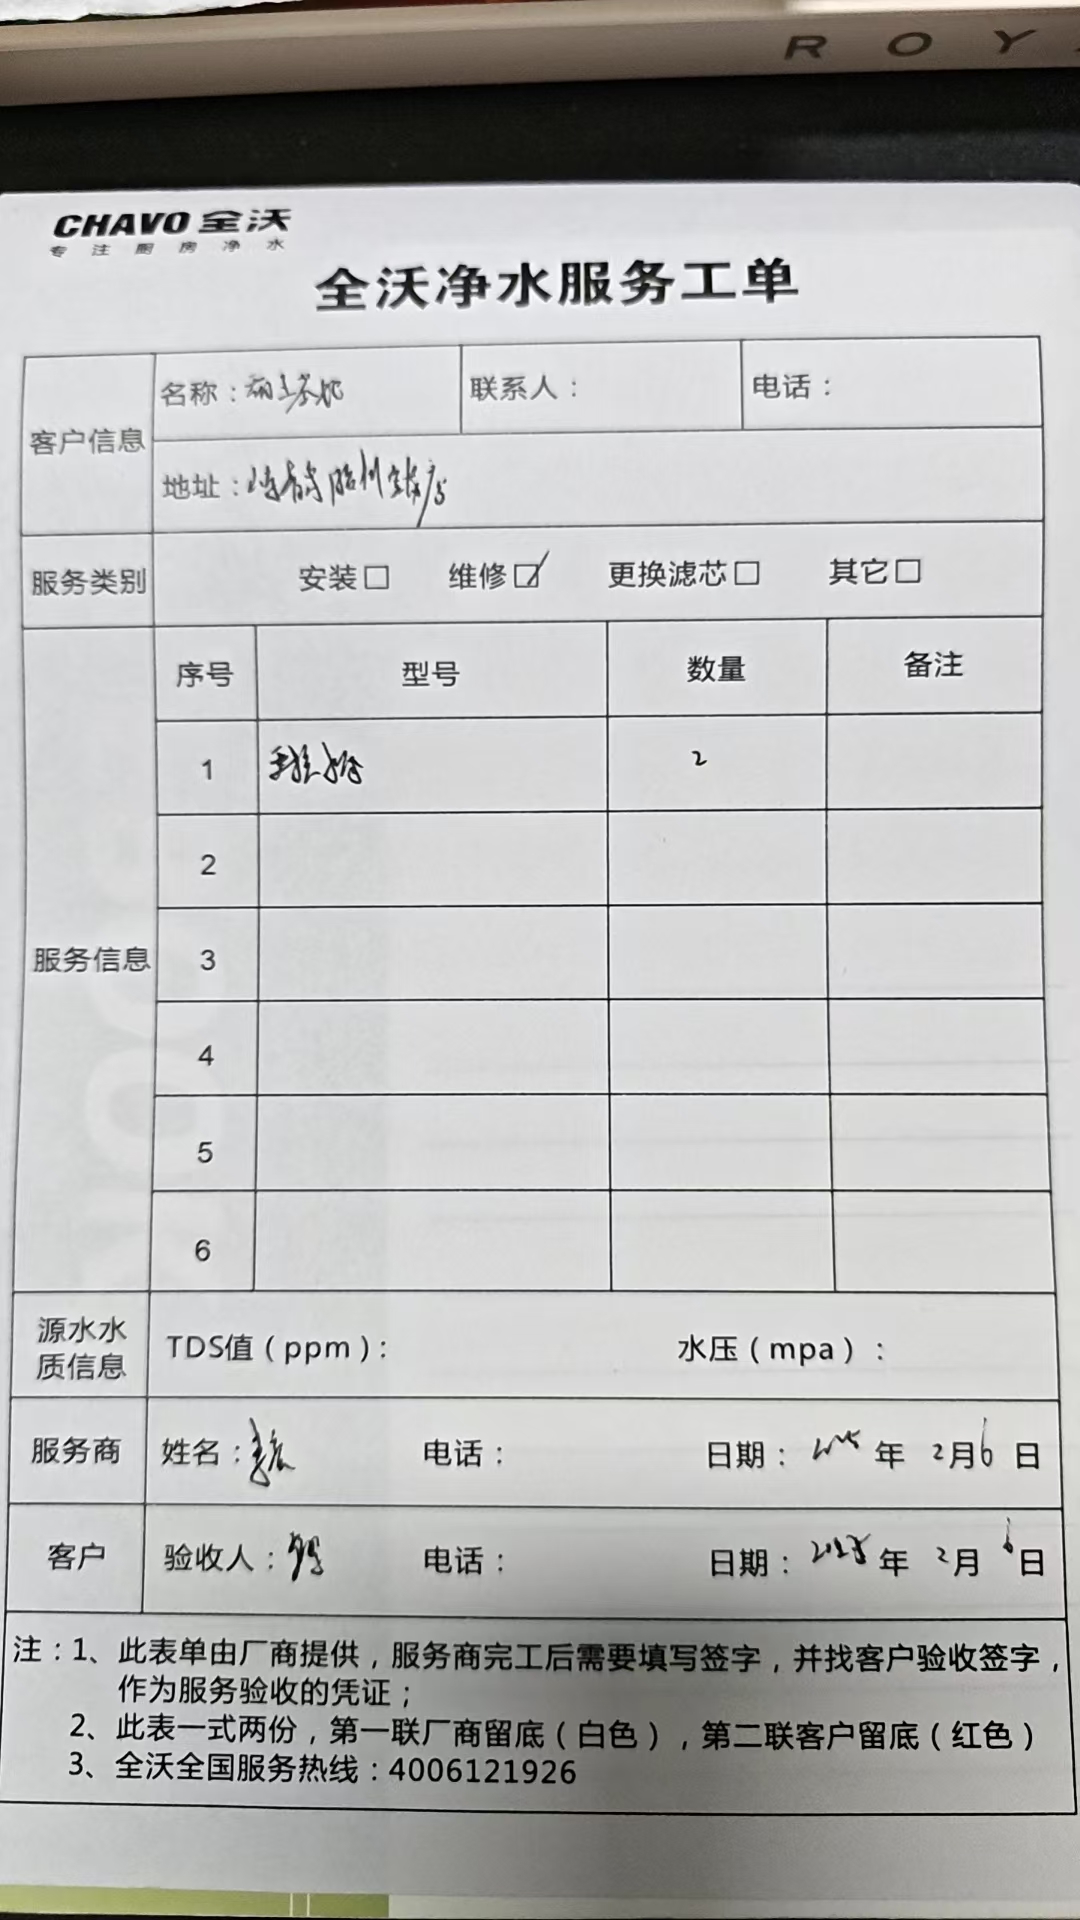 ROY
CHAVO 全沃
专注厨房净水
全沃净水服务工单
客户信息
名称：
联系人：
电话：
地址：
服务类别
安装□ 维修☑ 更换滤芯□ 其它□
服务信息
序号 型号 数量 备注
1 2
2
3
4
5
6
源水水质信息
TDS值（ppm）： 水压（mpa）：
服务商
姓名： 电话： 日期：2025年2月6日
客户
验收人： 电话： 日期：2025年2月6日
注：1、此表单由厂商提供，服务商完工后需要填写签字，并找客户验收签字，
作为服务验收的凭证；
2、此表一式两份，第一联厂商留底（白色），第二联客户留底（红色）
3、全沃全国服务热线：4006121926